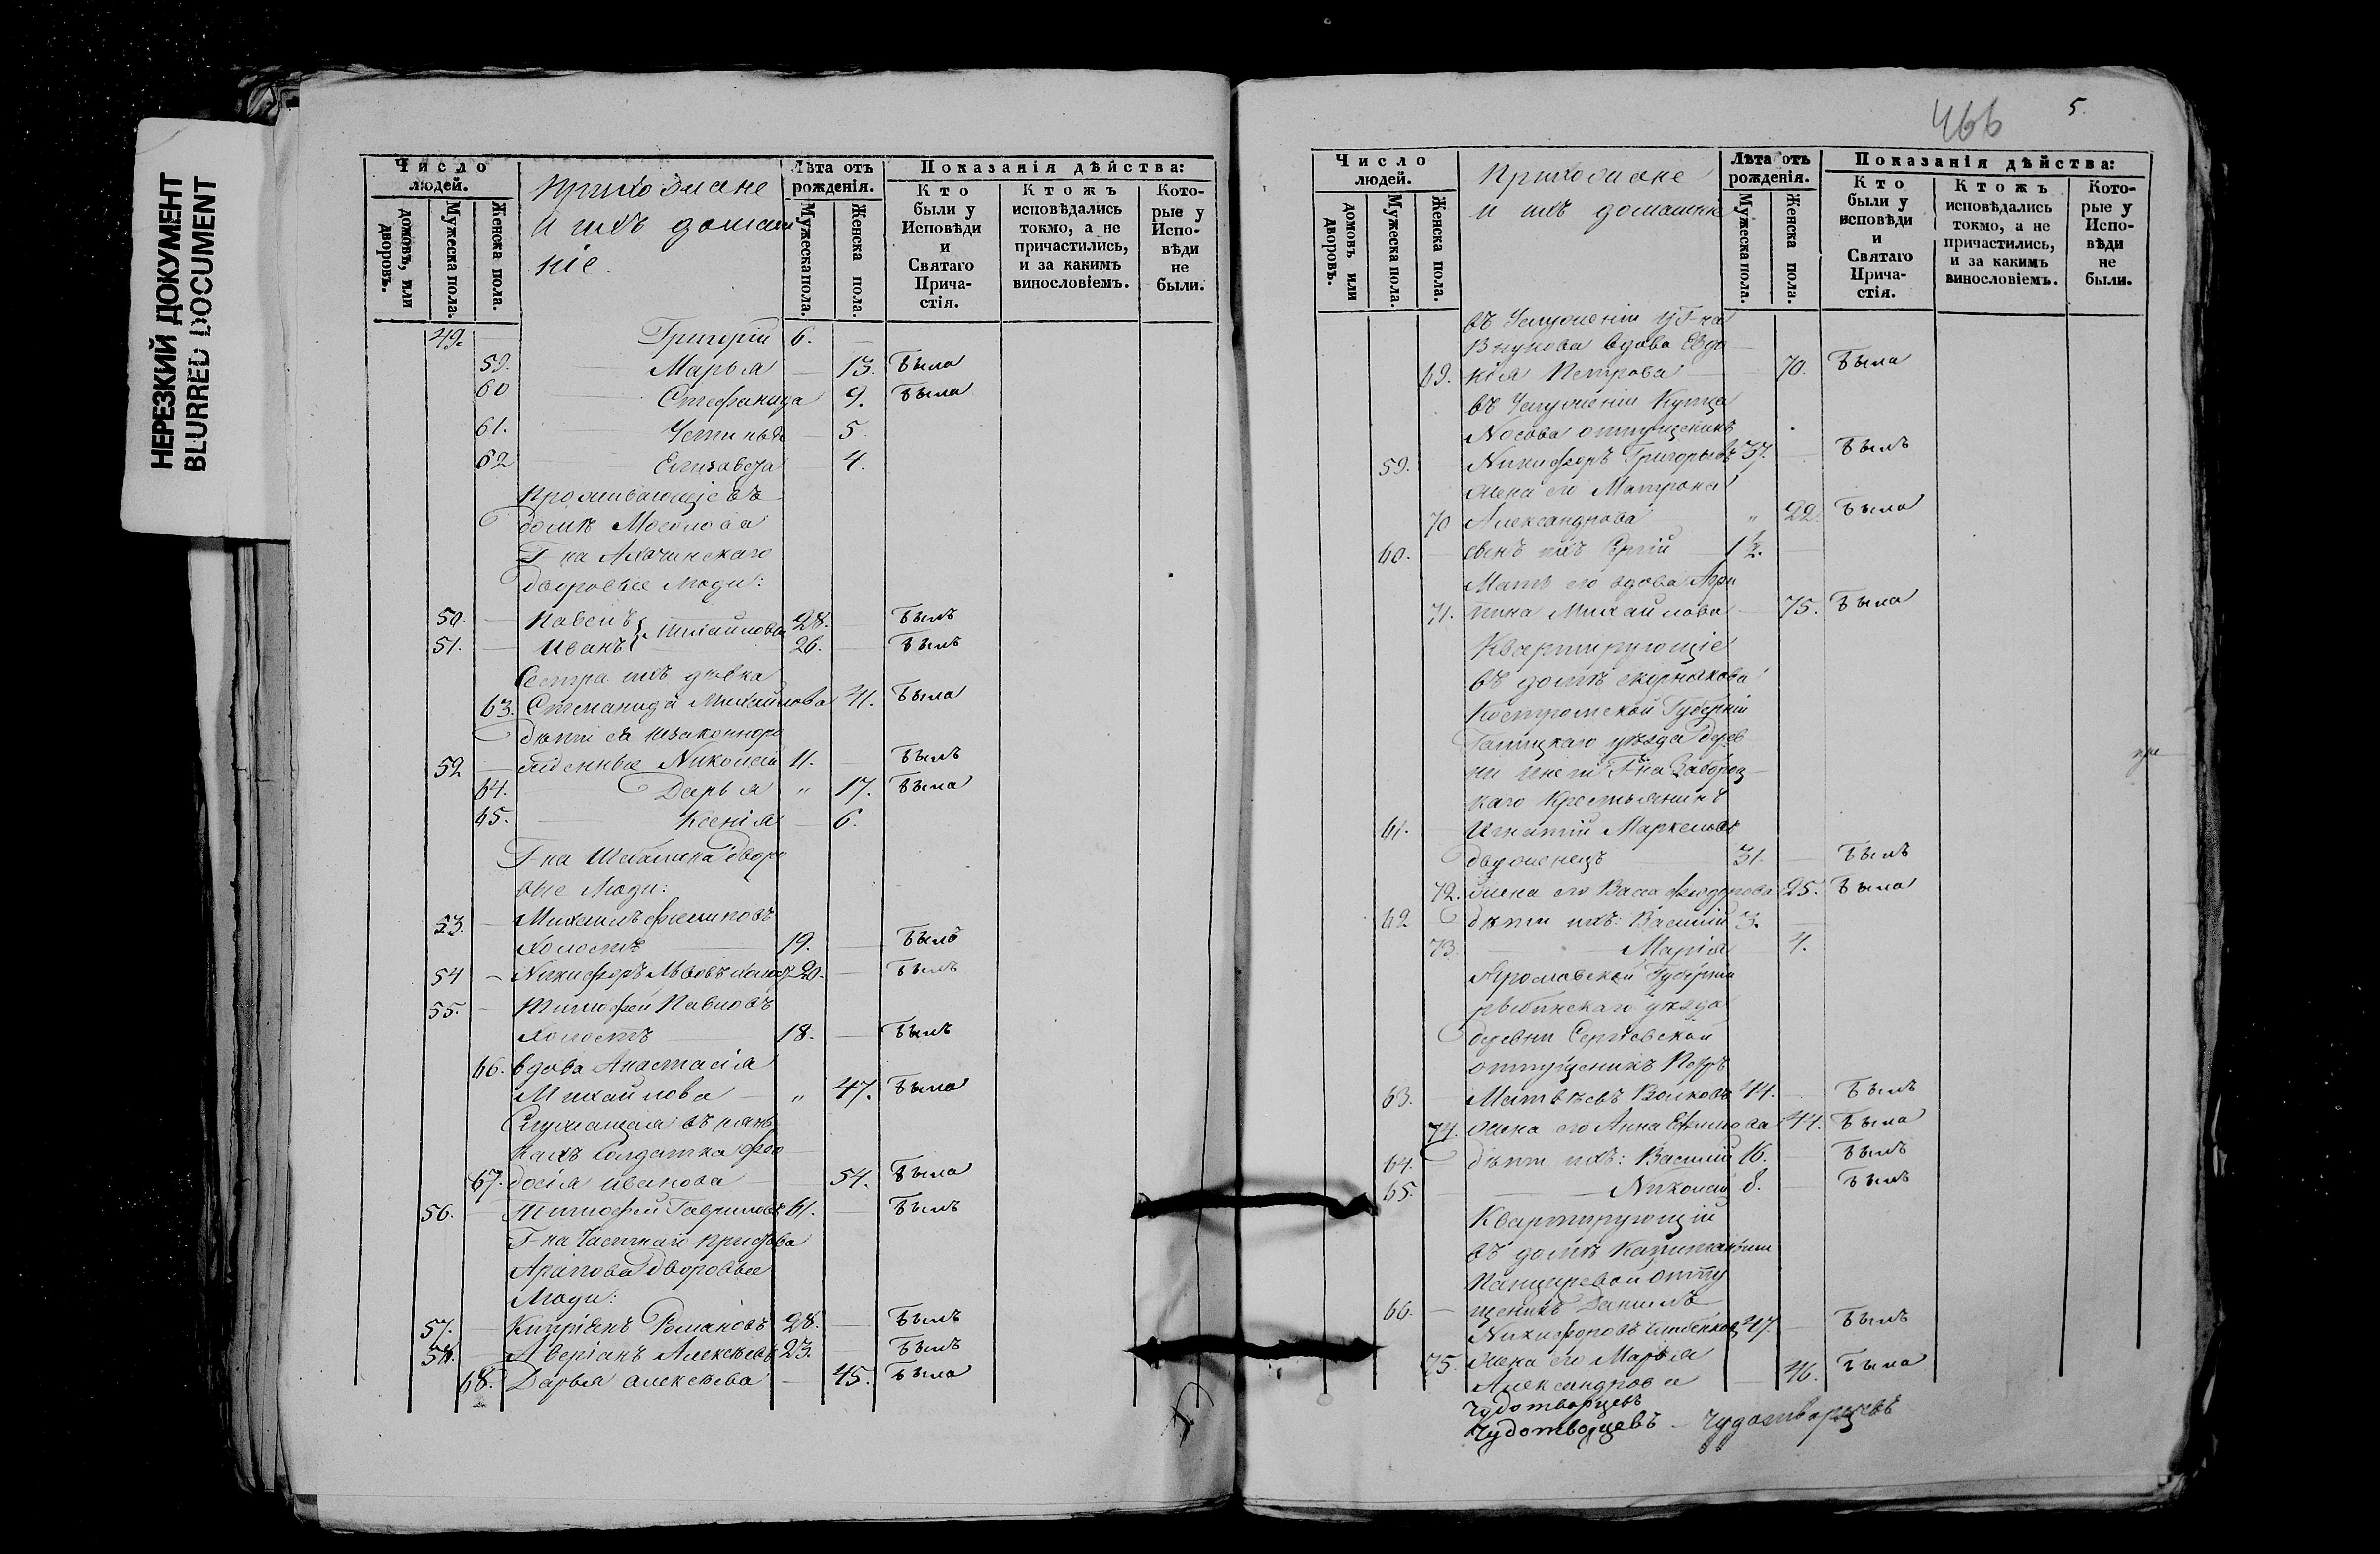 НЕРЕЗКИЙ ДОКУМЕНТ
BLURRED DOCUMENT
Число людей.
домовъ, или дворовъ.
Мужеска пола.
Женска пола.
Прихожане
и ихъ домаш
ніе.
Лѣта отъ рожденія.
Мужеска пола.
Женска пола.
Показанія дѣйства:
Кто были у Исповѣди и Святаго Прича-стія.
Ктожъ исповѣдались токмо, а не причастились, и за какимъ винословіемъ.
Кото-рые у Испо-вѣди не были.
49. — Григорій 6. —
59. Марья — 13. Была
60 Стефанида 9. Была
61. Устинья — 5.
62 Елизавета 4.
Проживающіе въ
домѣ Мосолова
Г-на
дворовые люди:
50. — Павелъ Михайловы 28. — Былъ
51. — Иванъ 26. — Былъ
Сестра ихъ дѣвка
63. Степанида Михайлова 41. Была
дѣти ея незаконноро
52 — жденные Николай 11. — Былъ
64. Дарья " 17. Была
65. Ксенія — 6.
Г-на дворо
вые люди:
53. — Михаилъ Филиповъ
холостъ 19. — Былъ
54 — Никифоръ Львовъ холост 20. — Былъ
55. — Тимофей Павловъ
холостъ 18. — Былъ
66. вдова Анастасія
Михайлова — " 47. Была
Служащая въ нянь
кахъ Солдатка Фео
67. досія Иванова — 54. Была
56. — Тимофей Гавриловъ 61. — Былъ
Г-на Частнаго Пристава
Арапова дворовые
люди:
57. — Кипріянъ Романовъ 28. — Былъ
58. — Аверіанъ Алексѣевъ 23. — Былъ
68. Дарья Алексѣева — 45. Была
466
5.
Число людей.
домовъ или дворовъ.
Мужеска пола.
Женска пола.
Прихожане
и ихъ домашніе
Лѣта отъ рожденія.
Мужеска пола.
Женска пола.
Показанія дѣйства:
Кто были у исповѣди и Святаго Прича-стія.
Ктожъ исповѣдались токмо, а не причастились, и за какимъ винословіемъ.
Кото-рые у Испо-вѣди не были.
въ Услуженіи у Г-на
Внукова вдова Евдо —
69. кія Петрова — 70. Была
въ Услуженіи Купца
Носова отпущеникъ
59. — Никифоръ Григорьевъ 37. — Былъ
жена его Матрона
70 Александрова " 22. Была
60. — сынъ ихъ Сергій 1½. —
Мать его вдова Агри
71. пина Михайлова — 75. Была
Квартирующіе
въ домѣ Скорнякова
Костромской Губерніи
Галицкаго уѣзда дерев
ни Г-на
каго Крестьянинъ
61. — Игнатій Маркеловъ
двуженецъ 31. — Былъ
72. жена его Васса Феодорова 25. Была
62 — дѣти ихъ: Василій 3. —
73. Марія 4.
Ярославской Губерніи
рыбинскаго уѣзда
деревни Сергіевской
отпущеникъ Петръ
63. — Матвѣевъ Волковъ 44. — Былъ
74. жена его Анна Ефимова 44. Была
64. — дѣти ихъ: Василій 16. — Былъ
65. — Николай 8. — Былъ
Квартирующій
въ домѣ Капитанши
Панцыревой Отпу
66. — щеникъ Даніилъ
Никифоровъ 47. — Былъ
75. жена его Марья
Александрова — 46. Была
Чудотворцевъ
Чудотворцевъ — Чудотворцевъ